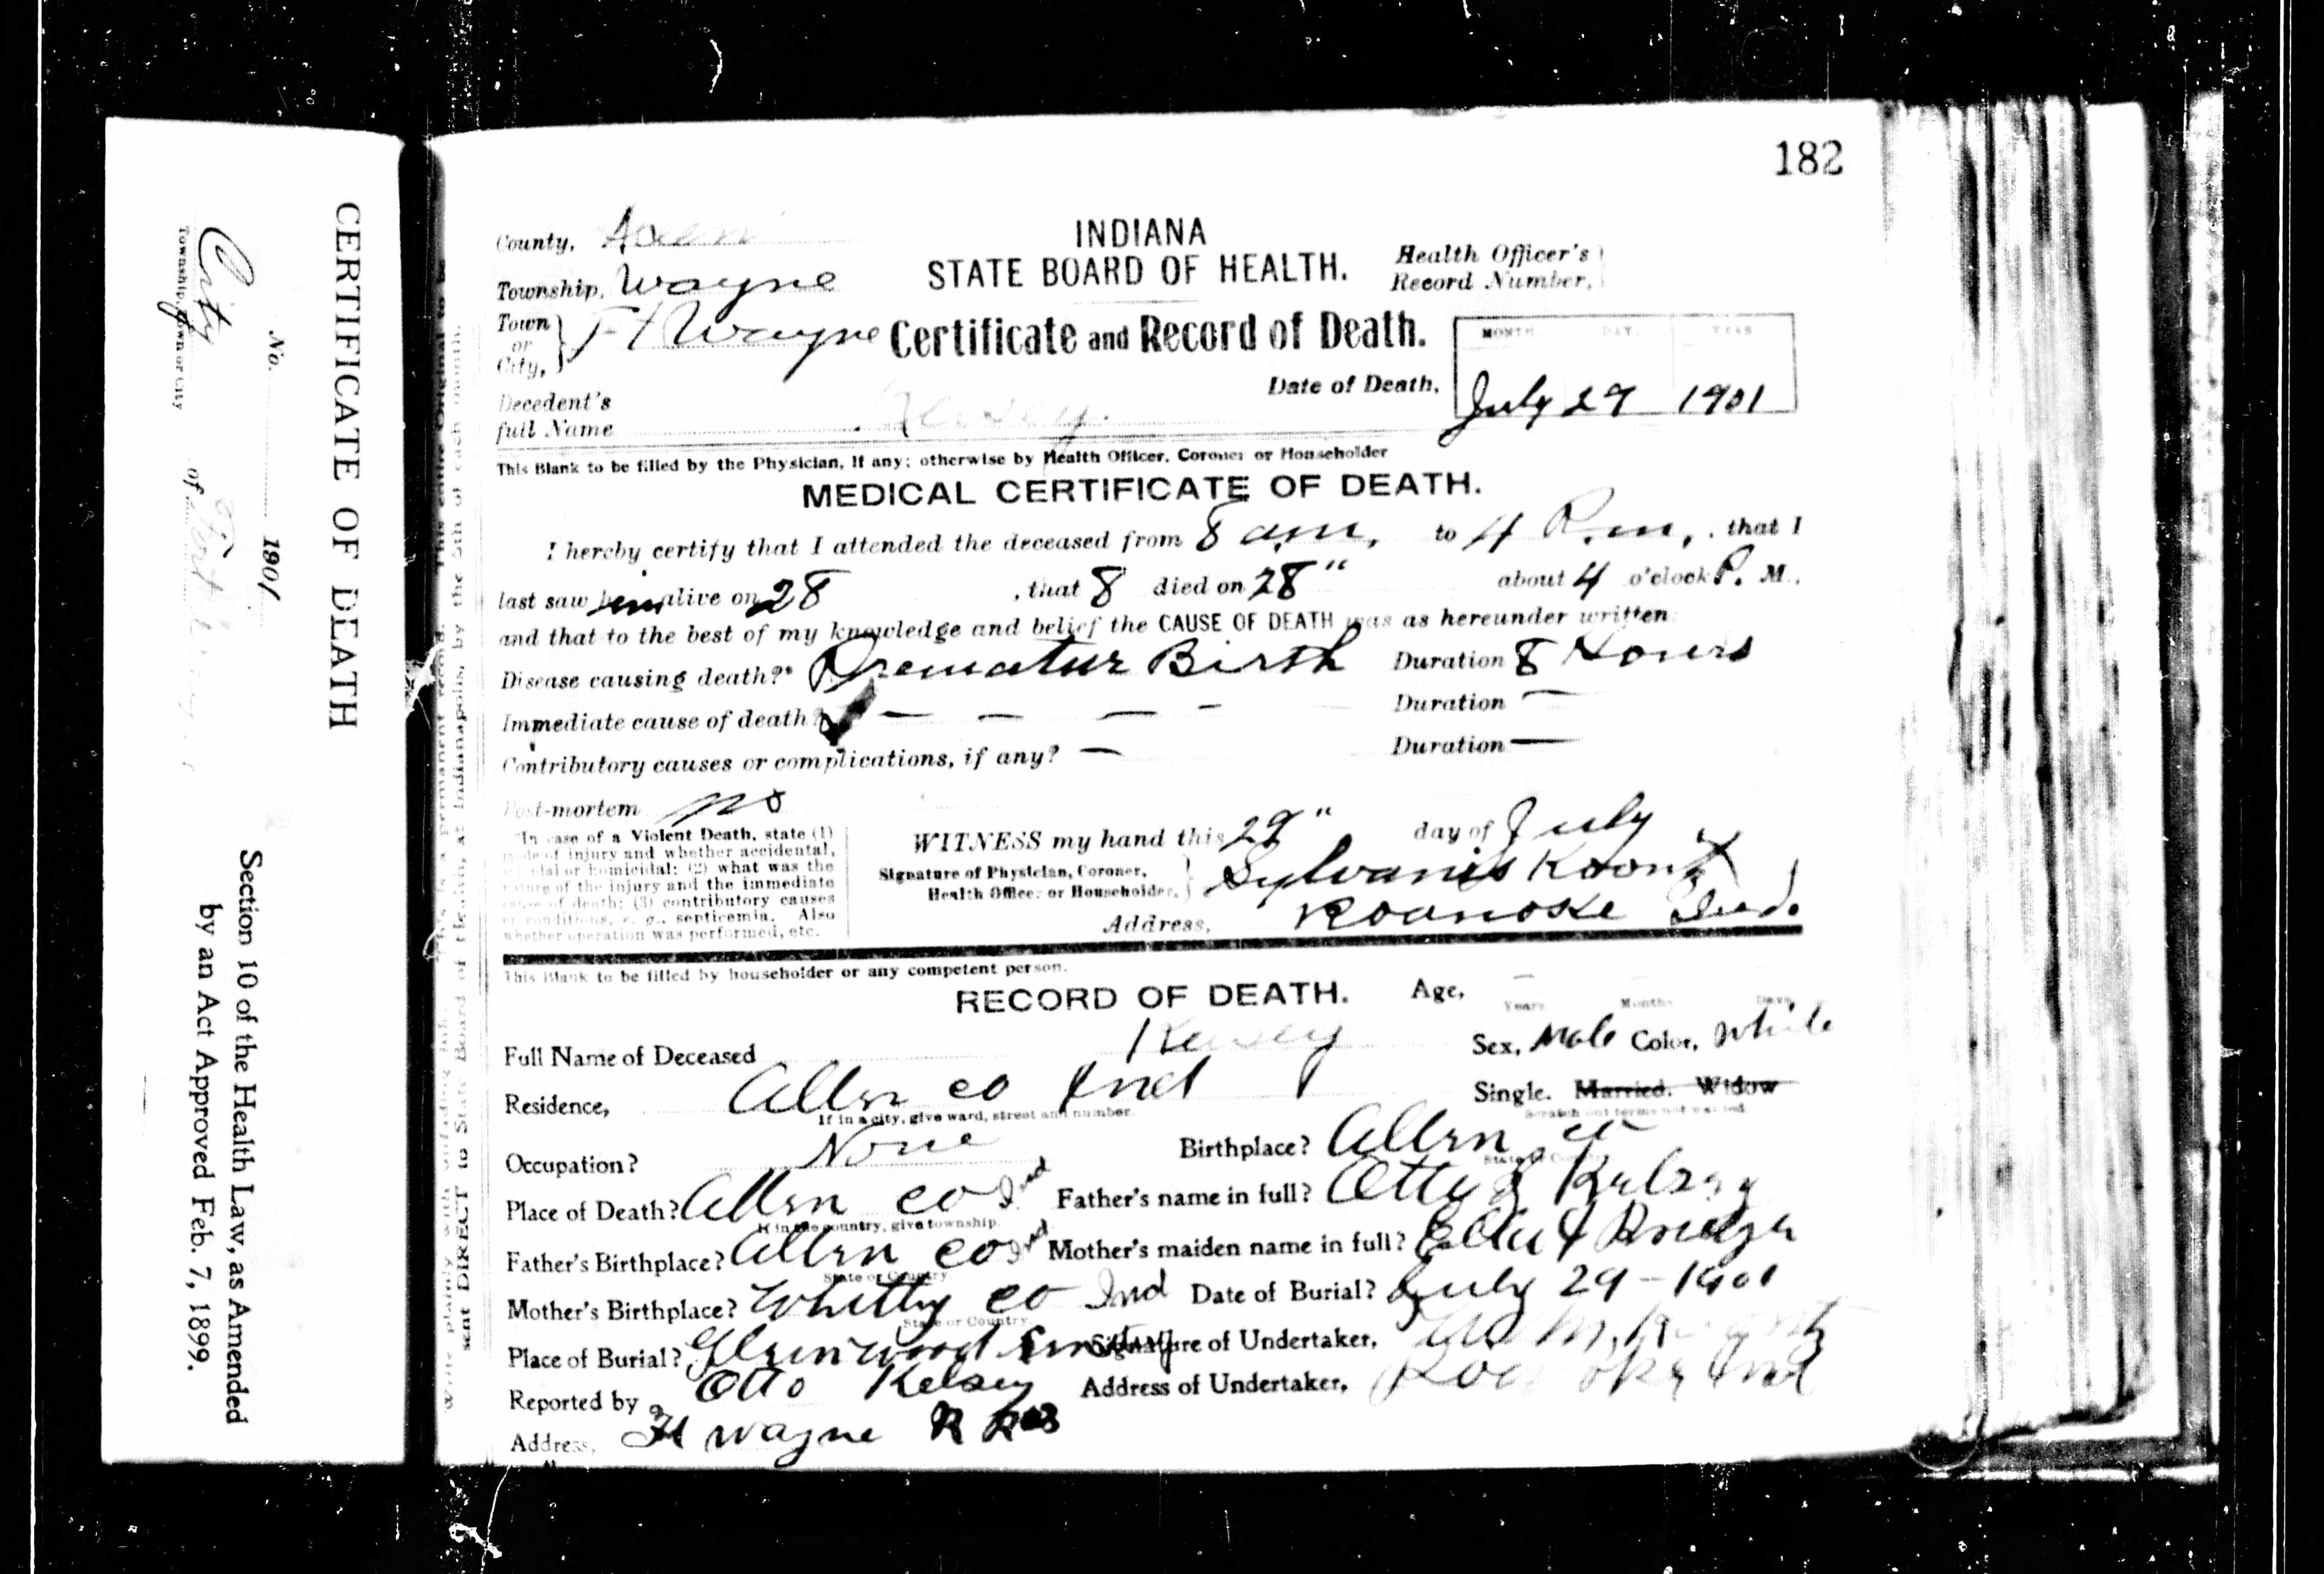 182
CERTIFICATE OF DEATH
No. 1901
City of Fort
Township, Town or City
Section 10 of the Health Law, as Amended
by an Act Approved Feb. 7, 1899.
sent DIRECT to State Board of Health, at Indianapolis, by the 5th of each month.
County, Allen
INDIANA
STATE BOARD OF HEALTH.
Health Officer's
Record Number,
Township, Wayne
Town or City, Ft Wayne
Certificate and Record of Death.
MONTH. DAY. YEAR
Date of Death, July 29 1901
Decedent's
full Name Kelsey.
This Blank to be filled by the Physician, if any; otherwise by Health Officer, Coroner or Householder
MEDICAL CERTIFICATE OF DEATH.
I hereby certify that I attended the deceased from 8 am, to 4 P.m,. that I
last saw him alive on 28 , that 8 died on 28" about 4 o'clock P. M.,
and that to the best of my knowledge and belief the CAUSE OF DEATH was as hereunder written
Disease causing death?* Prematur Birth Duration 8 Hours
Immediate cause of death? — — — - Duration —
Contributory causes or complications, if any? — Duration —
Post-mortem no
*In case of a Violent Death, state (1)
mode of injury and whether accidental,
suicidal or homicidal; (2) what was the
nature of the injury and the immediate
cause of death; (3) contributory causes
or conditions, e. g., septicemia. Also
whether operation was performed, etc.
WITNESS my hand this 29" day of July
Signature of Physician, Coroner,
Health Officer or Householder, Sylvanis Koontz
Address, Roanoke Ind.
This Blank to be filled by householder or any competent person.
RECORD OF DEATH. Age, —
Years Months Days
Full Name of Deceased Kelsey Sex, Male Color, White
Residence, Allen co Ind Single. Married. Widow
If in a city, give ward, street and number. Scratch out terms not wanted.
Occupation? None Birthplace? Allen co
State or Country
Place of Death? Allen co Ind Father's name in full? Otto Kelsey
If in the country, give township.
Father's Birthplace? Allen co Ind Mother's maiden name in full?
State or Country
Mother's Birthplace? Whitly co Ind Date of Burial? July 29 - 1901
State or Country
Place of Burial? Signature of Undertaker,
Reported by Otto Kelsey Address of Undertaker, Roanoke Ind
Address, Ft Wayne R R